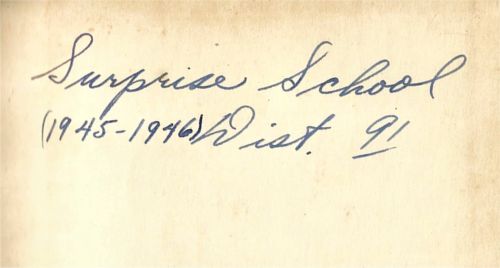 Surprise School
(1945-1946) Dist. 91